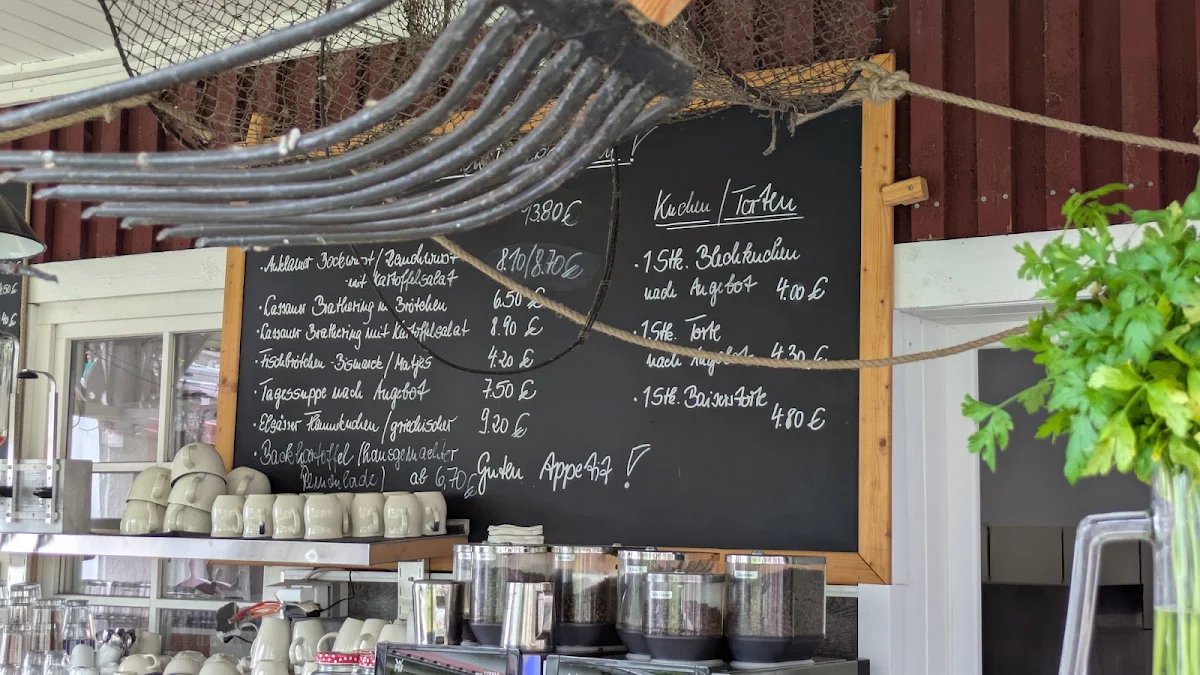 13.80 €
· Anklamer Bockwurst / Rauchwurst 8.10/8.70 €
mit Kartoffelsalat
· Lassaner Brathering im Brötchen 6.50 €
· Lassaner Brathering mit Kartoffelsalat 8.90 €
· Fischbrötchen - Bismarck / Matjes 4.20 €
· Tagessuppe nach Angebot 7.50 €
· Elsässer Flammkuchen / griechischer 9.20 €
Backkartoffel (hausgemachter
Remoulade) ab 6,70 €
Guten Appetit!
Kuchen / Torten
· 1 Stk. Blechkuchen
nach Angebot 4.00 €
· 1 Stk. Torte
nach Angebot 4.30 €
· 1 Stk. Baisertorte
4.80 €